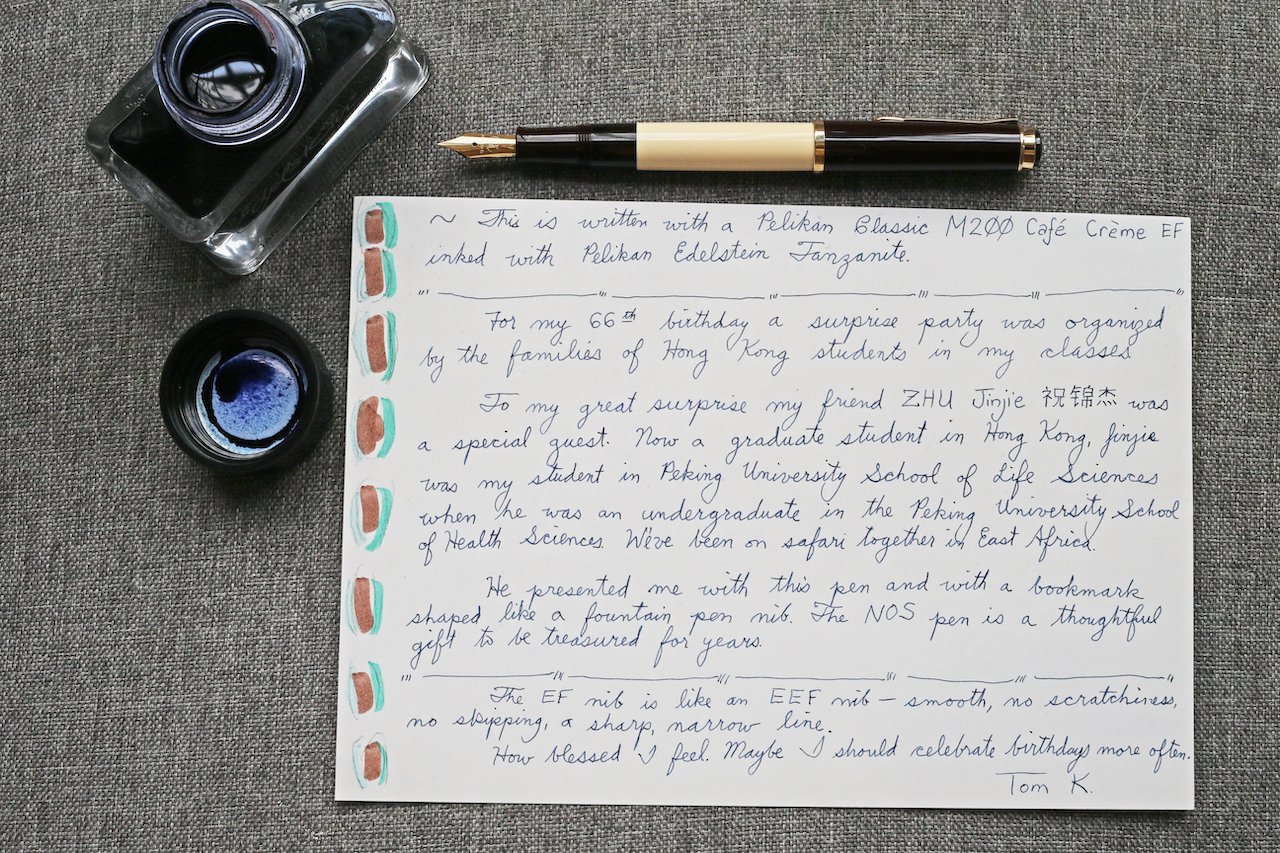 ~ This is written with a Pelikan Classic M200 Café Crème EF
inked with Pelikan Edelstein Tanzanite.
For my 66th birthday a surprise party was organized
by the families of Hong Kong students in my classes
To my great surprise my friend ZHU Jinjie 祝锦杰 was
a special guest. Now a graduate student in Hong Kong, Jinjie
was my student in Peking University School of Life Sciences
when he was an undergraduate in the Peking University School
of Health Sciences. We've been on safari together in East Africa.
He presented me with this pen and with a bookmark
shaped like a fountain pen nib. The NOS pen is a thoughtful
gift to be treasured for years.
The EF nib is like an EEF nib — smooth, no scratchiness,
no skipping, a sharp, narrow line.
How blessed I feel. Maybe I should celebrate birthdays more often.
Tom K.